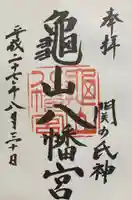 奉拝
関の氏神
亀山八幡宮
平成二十七年八月三十日